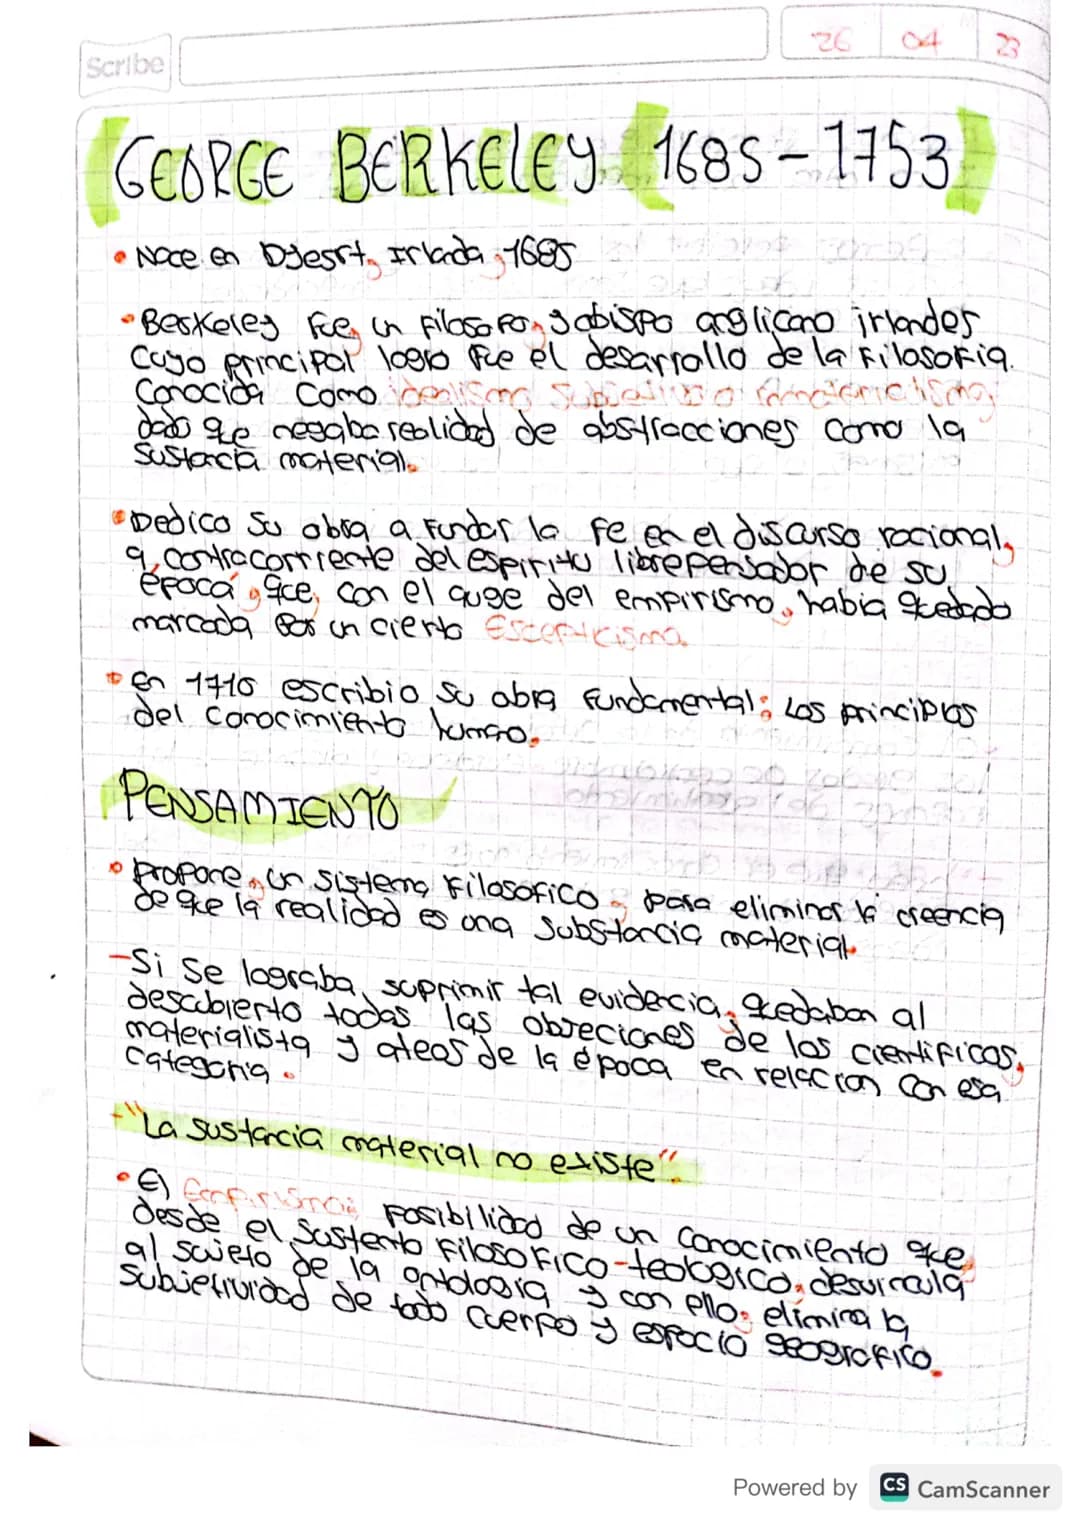 Scribe
26 04 23
GEORGE BERKELEY (1685-1753)
• Nace en Dyesrt, Irlada, 1685
• Berkeley fue, un filosofo, y obispo anglicano irlandes
cuyo principal logro fue el desarrollo de la filosofia.
Conocida Como idealismo subjetivo o inmaterialismo,
dado que negaba realidad de abstracciones como la
sustacia material.
• Dedico su obra a fundar la fe en el discurso racional,
a contracorriente del espiritu librepensador de su
época, que, con el auge del empirismo, habia quedado
marcada por un cierto Escepticismo.
• En 1710 escribio su obra fundamental: Los principios
del conocimiento humano.
PENSAMIENTO
• Propone, un sistema filosofico, para eliminar la creencia
de que la realidad es una substancia material.
-Si se lograba, suprimir tal evidencia, quedaban al
descubierto todas las objeciones de los cientificos,
materialista y ateos de la época en relacion con esa
categoria.
-"La sustancia material no existe".
• El Empirismo: posibilidad de un conocimiento que,
desde el sustento filosofico-teologico, desvincula
al sujeto de la ontologia y con ello, elimina la
subjetividad de todo cuerpo y espacio geografico.
Powered by CS CamScanner